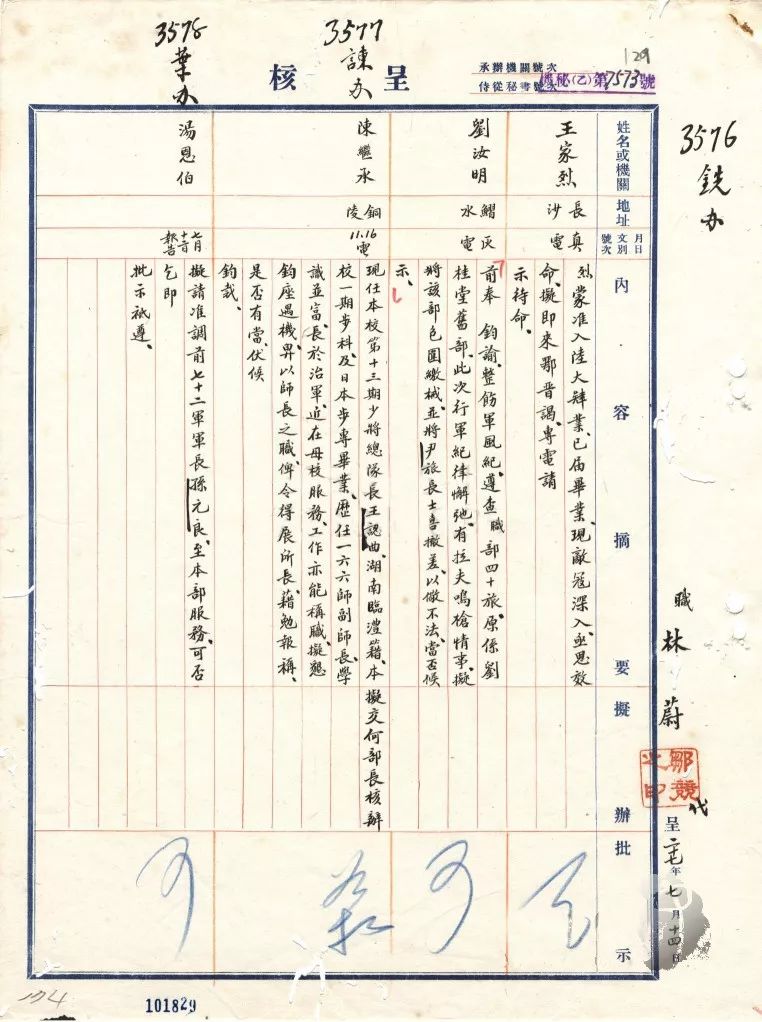 3578
葉办
3577
諫办
呈核
承辦機關號次
侍從秘書號次
機秘(乙)第7573號
129
3576
銑办
姓名或機關
地址
月日
文別
號次
內容摘要
擬辦
批示
王家烈
長沙
真電
烈蒙准入陸大肄業、已届畢業、現敵寇深入、亟思效
命、擬即来鄂晋謁、專電請
示待命、
劉汝明
鰼水
灰電
前奉 鈞諭、整飭軍風紀、遵查職部四十旅、原係劉
桂堂舊部、此次行軍紀律懈弛、有拉夫鳴槍情事、擬
將該部包圍繳械、並將尹旅長士喜撤差、以儆不法、當否候
示、
陳繼承
銅陵
11.16電
現任本校第十三期少將總隊長王認曲、湖南臨澧籍、本
校一期步科、及日本步專畢業、歷任一六六師副師長、學
識並富、長於治軍、近在母校服務、工作亦能稱職、擬懇
鈞座遇機畀以師長之職、俾令得展所長、藉勉報稱、
是否有當、伏候
鈞裁、
擬交何部長核辦
湯恩伯
七月十二日報告
擬請准調前七十二軍軍長孫元良、至本部服務、可否
乞即
批示祇遵、
可
可
職 林蔚 代
鄒競之印
呈 廿七年七月十四日
174
101829